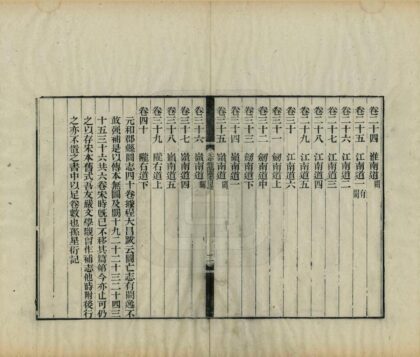 卷二十四 淮南道闕
卷二十五 江南道一
卷二十六 江南道二
卷二十七 江南道三
卷二十八 江南道四
卷二十九 江南道五
卷三十 江南道六
卷三十一 劒南道上
卷三十二 劒南道中
卷三十三 劒南道下
卷三十四 嶺南道一
卷三十五 嶺南道二闕
卷三十六 嶺南道三闕
卷三十七 嶺南道四
卷三十八 嶺南道五
卷三十九 隴右道上
卷四十 隴右道下
元和郡縣圖志四十卷據程大昌跋云圖亡志有闕逸不
故弼補足以傳本無圖及闕十九二十二十三二十四三
十五三十六共六卷宋時旣已不移其篇第今亦止可仍
之以存宋本舊式吾友嚴文學觀曾作補志他時附後行
之亦不遺之書中以足卷數也孫星衍記